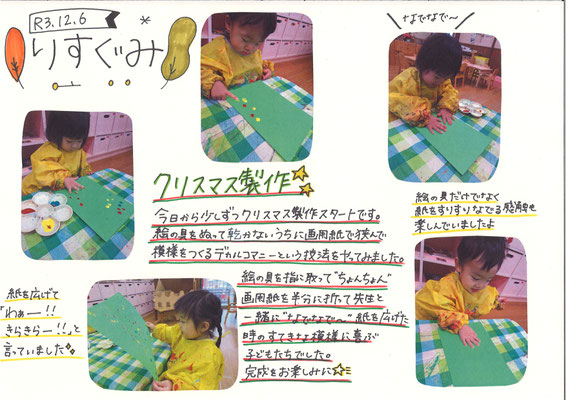 R3.12.6
りすぐみ
なでなで〜
クリスマス製作
今日から少しずつクリスマス製作スタートです。
絵の具をぬって乾かないうちに画用紙で挟んで
模様をつくるデカルコマニーという技法をやってみました。
絵の具を指に取って"ちょんちょん"
画用紙を半分に折って先生と
一緒に"なでなで。" 紙を広げた
時のすてきな模様に喜ぶ
子どもたちでした。
完成をお楽しみに
絵の具だけでなく
紙をすりすりなでる感触も
楽しんでいましたよ
紙を広げて
「わぁー!!
きらきらー!!」と
言っていました